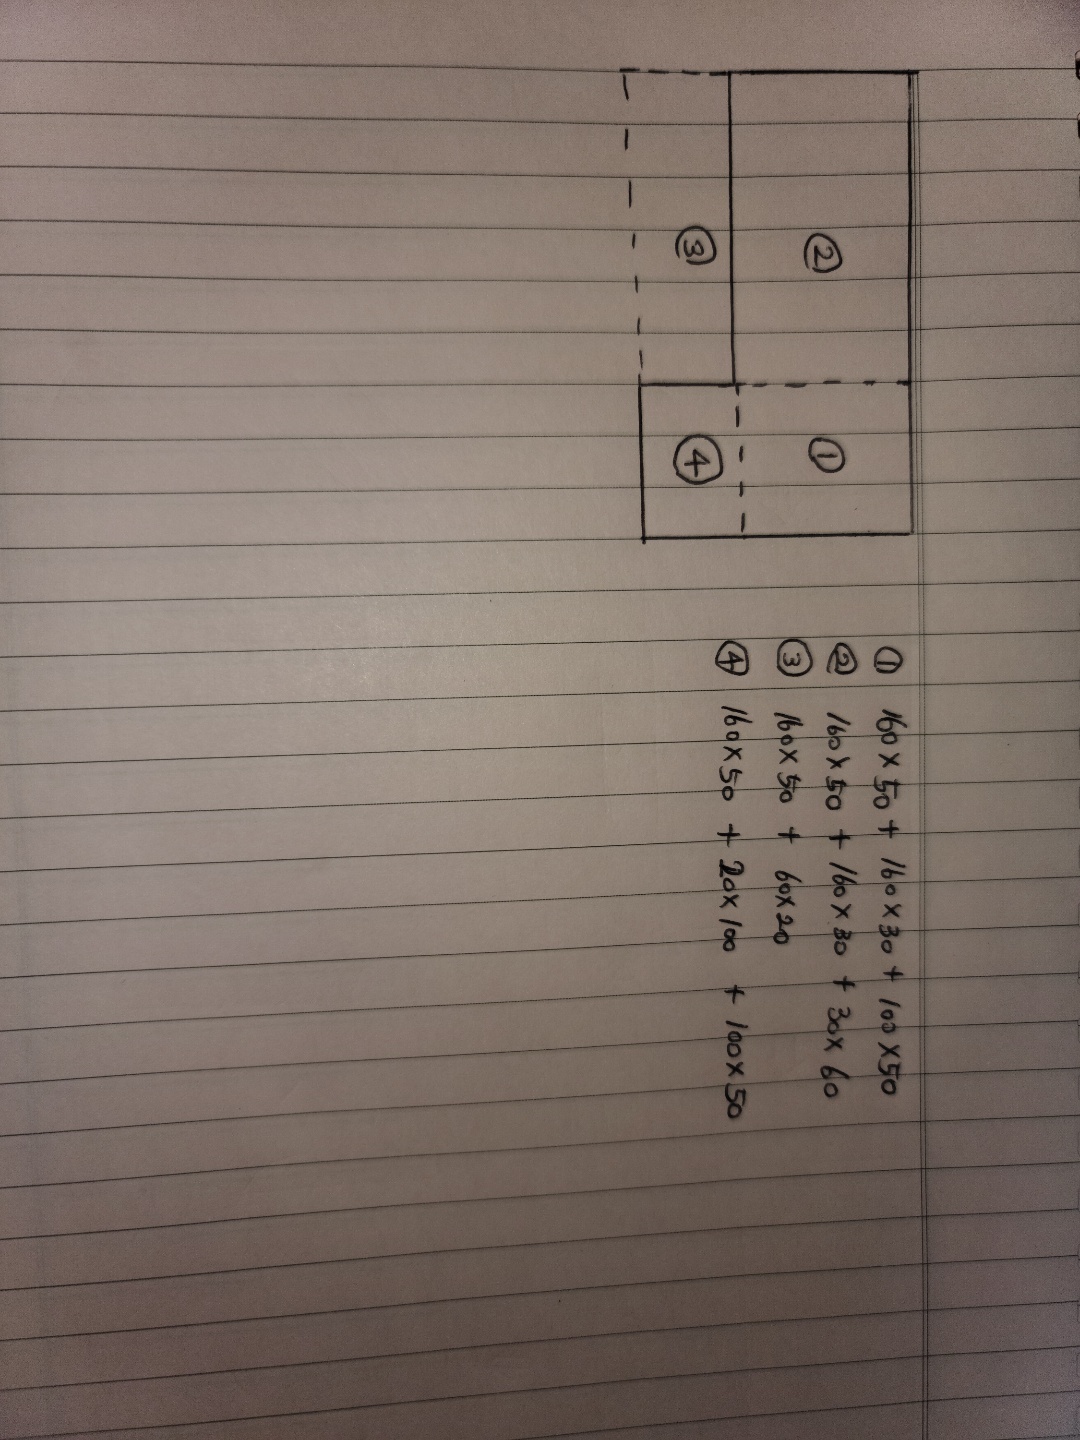 ② ①
③ ④
① 160 × 50 + 160 × 30 + 100 × 50
② 160 × 50 + 160 × 30 + 30 × 60
③ 160 × 50 + 60 × 20
④ 160 × 50 + 20 × 100 + 100 × 50